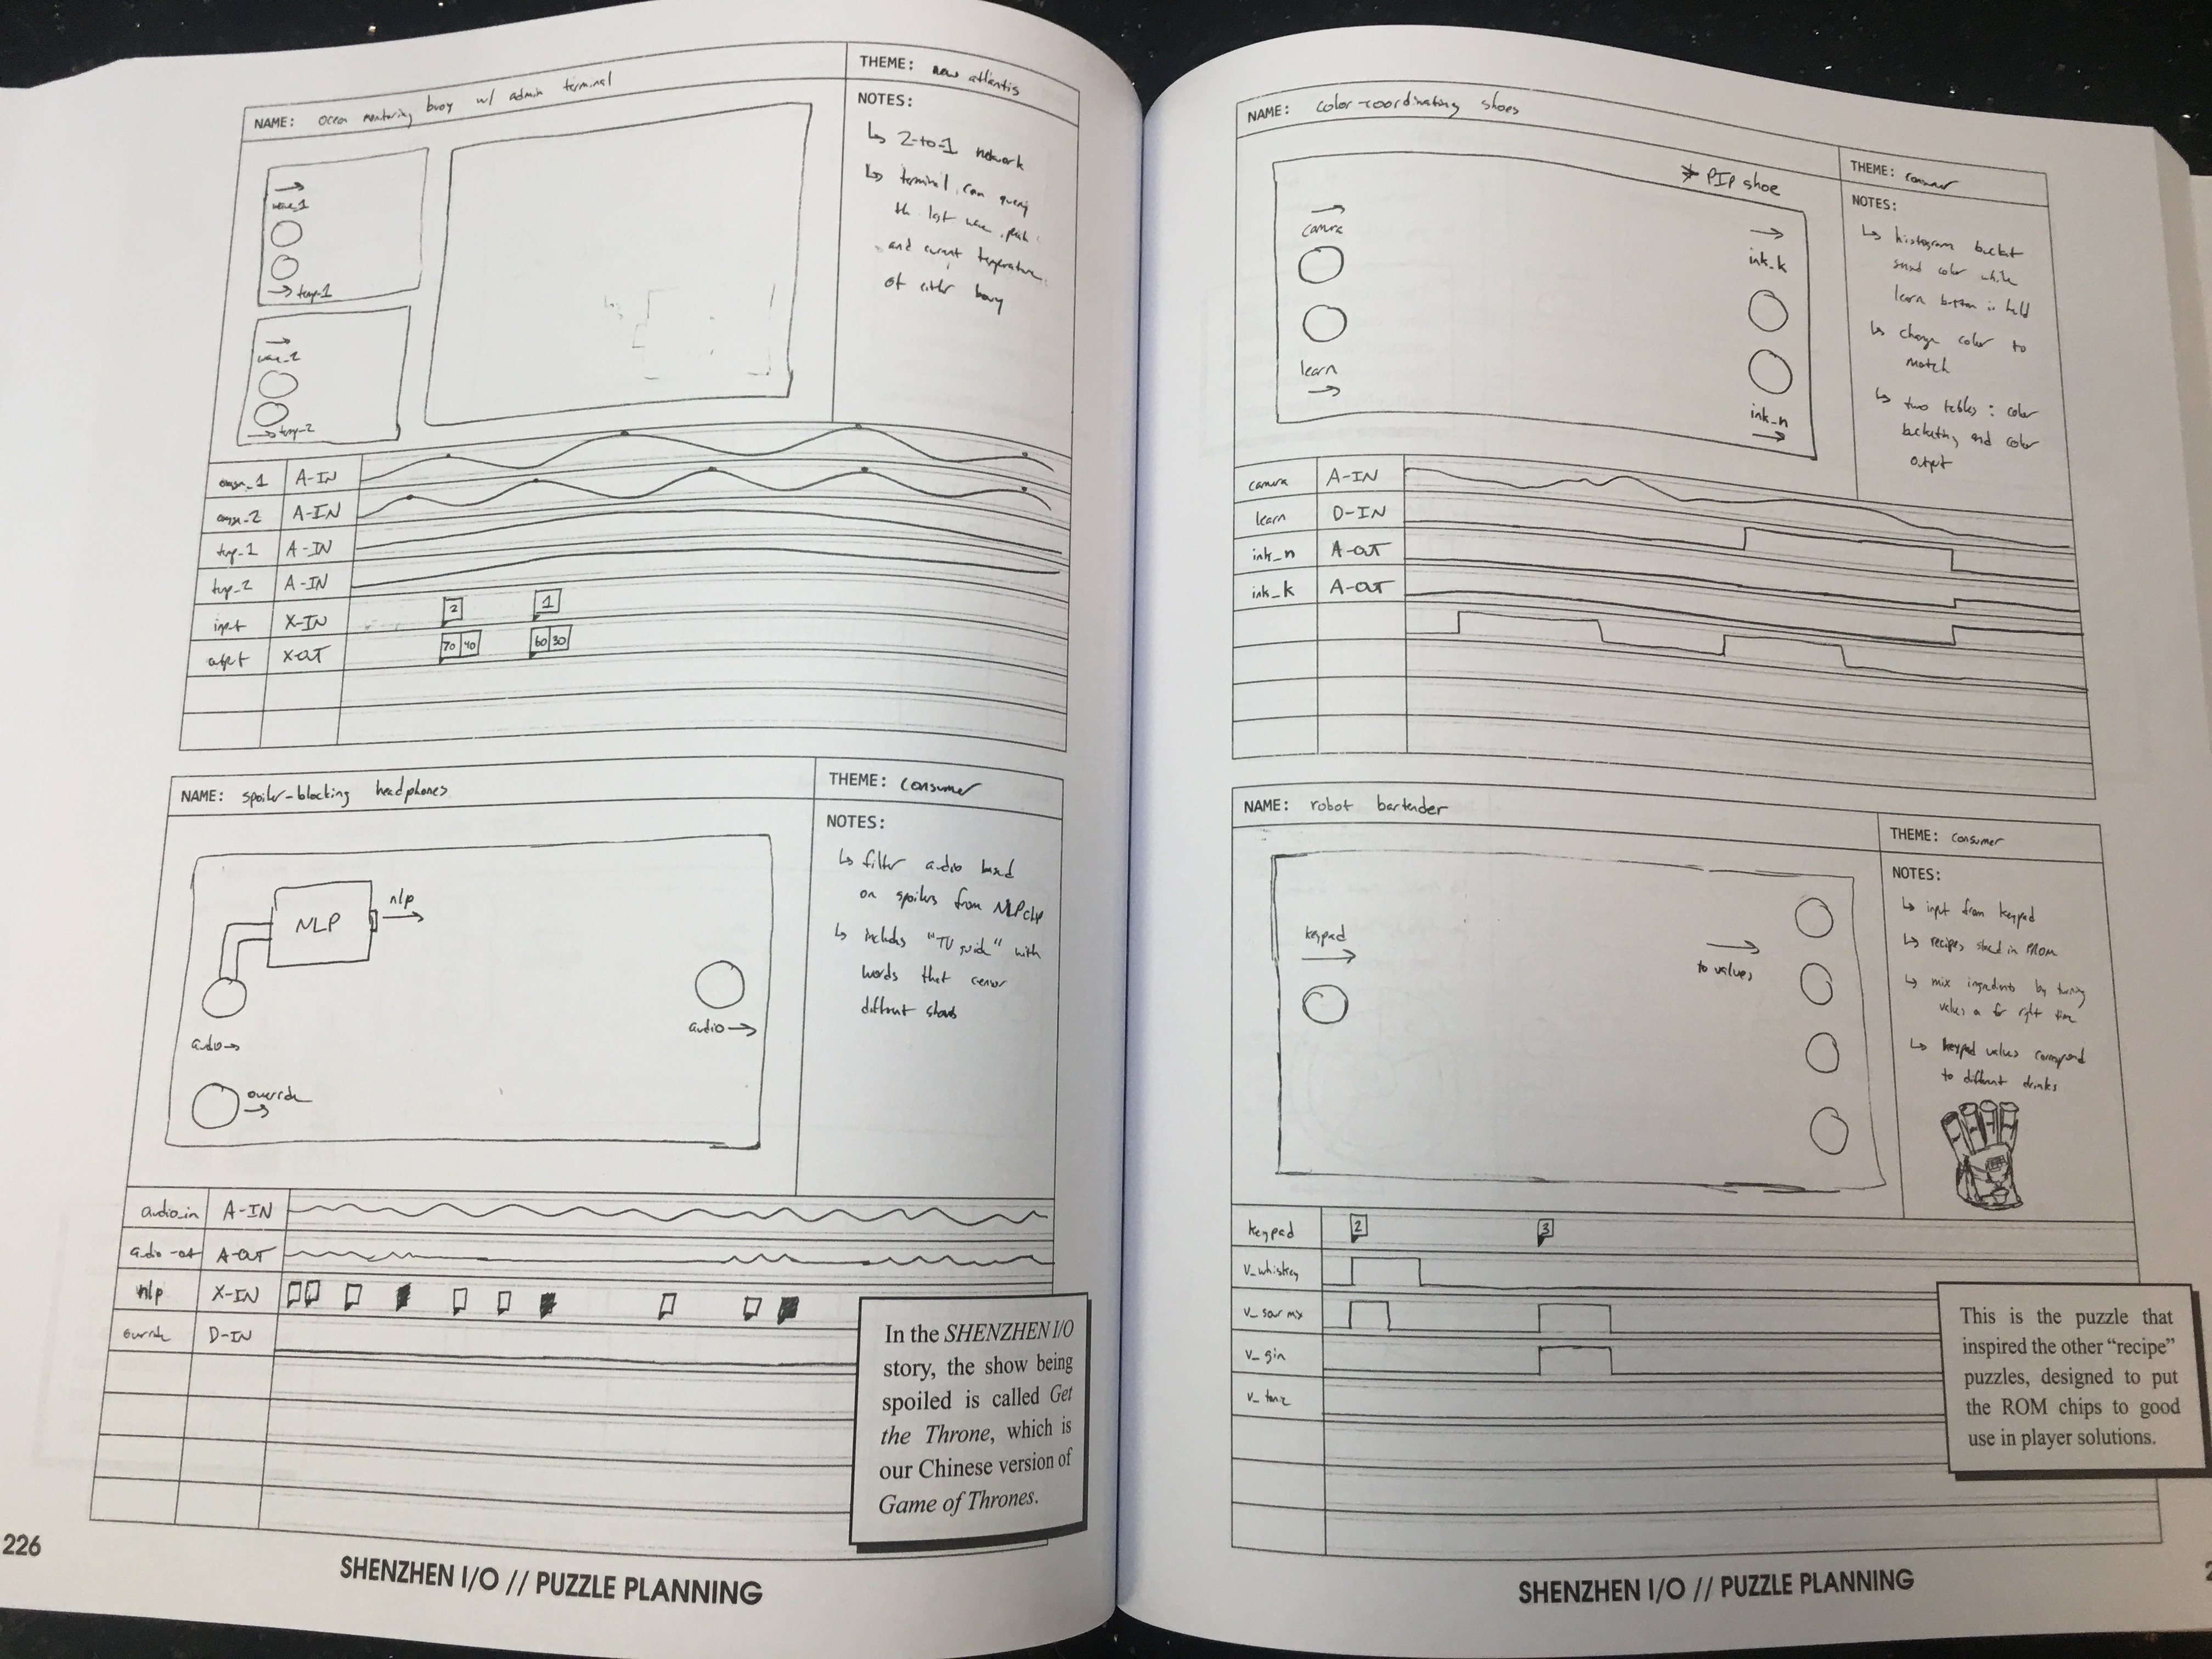 NAME: ocean monitoring buoy w/ admin terminal
THEME: new atlantis
NOTES:
↳ 2-to-1 network
↳ terminal can query
the last wave peak
and current temperature
of either buoy
→
wave_1
→ temp_1
→
wave_2
→ temp_2
A-IN
A-IN
temp_1 A-IN
temp_2 A-IN
input X-IN 2 1
output X-OUT 70 40 60 30
NAME: spoiler-blocking headphones
THEME: consumer
NOTES:
↳ filter audio based
on spoilers from NLP chip
↳ includes "TV guide" with
words that censor
different shows
NLP
nlp
→
audio→
audio→
override
→
audio_in A-IN
audio-out A-OUT
nlp X-IN
override D-IN
In the SHENZHEN I/O
story, the show being
spoiled is called Get
the Throne, which is
our Chinese version of
Game of Thrones.
226
SHENZHEN I/O // PUZZLE PLANNING
NAME: color-coordinating shoes
THEME: consumer
NOTES:
↳ histogram bucket
sensed color while
learn button is held
↳ change color to
match
↳ two tables: color
bucketing and color
output
* PIP shoe
→
camera
→
ink_k
learn
→
ink_n
→
camera A-IN
learn D-IN
ink_n A-OUT
ink_k A-OUT
NAME: robot bartender
THEME: consumer
NOTES:
↳ input from keypad
↳ recipes stored in PROM
↳ mix ingredients by turning
valves on for right time
↳ keypad values correspond
to different drinks
keypad
→
→
to valves
keypad 2 3
v_whiskey
v_sour mix
v_gin
v_tonic
This is the puzzle that
inspired the other “recipe”
puzzles, designed to put
the ROM chips to good
use in player solutions.
SHENZHEN I/O // PUZZLE PLANNING